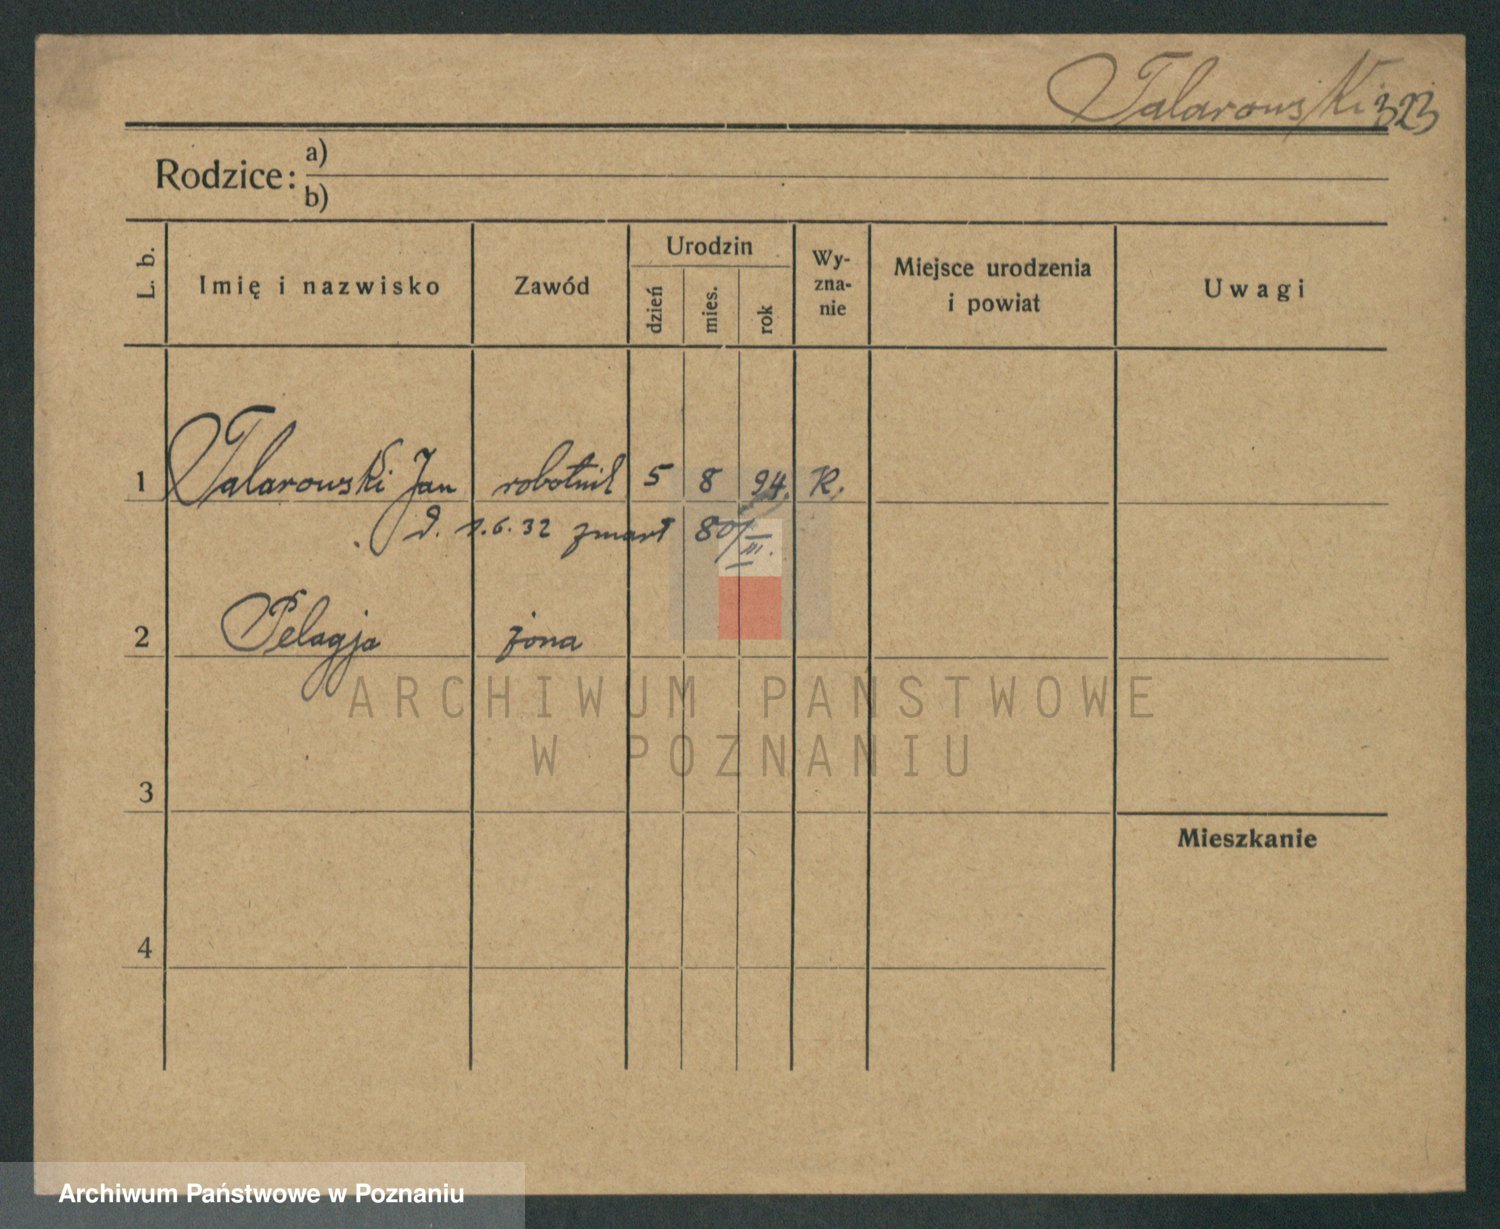 Talarowski 323
Rodzice: a)
b)
L. b. Imię i nazwisko Zawód Urodzin dzień mies. rok Wy-zna-nie Miejsce urodzenia i powiat Uwagi
1 Talarowski Jan robotnik 5 8 94. K.
d. 1.6.32 zmarł 80/III.
2 Pelagja żona
ARCHIWUM PAŃSTWOWE
W POZNANIU
3
Mieszkanie
4
Archiwum Państwowe w Poznaniu